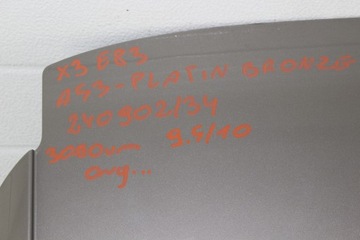 X3 E83
A53-PLATIN BRONZE
240902/34
3000km 9.5/10
org...